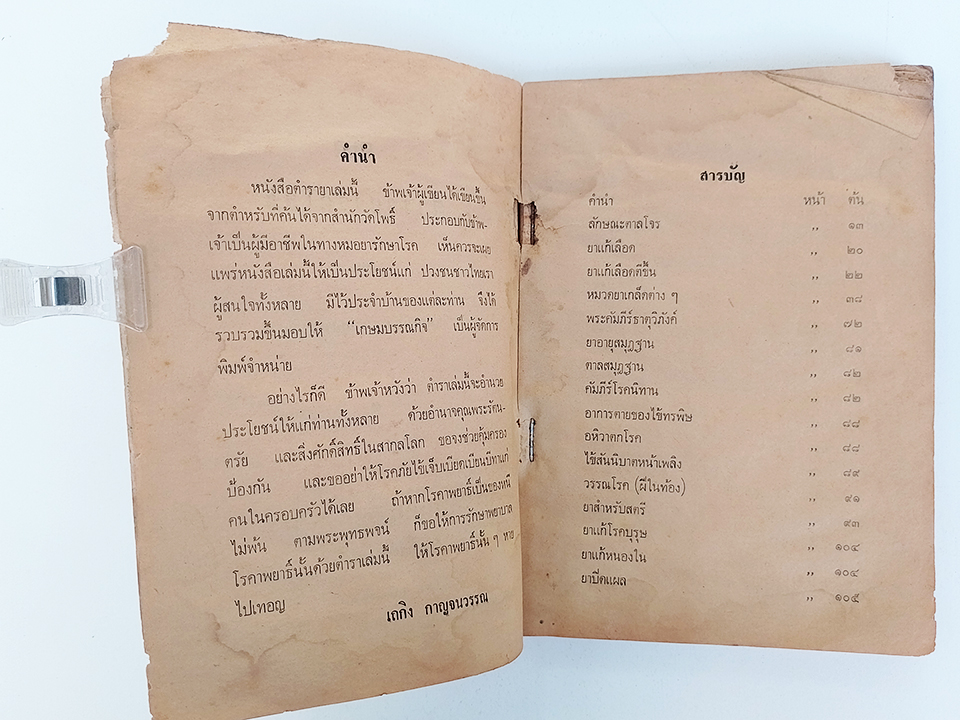 คำนำ
หนังสือตำรายาเล่มนี้ ข้าพเจ้าผู้เขียนได้เขียนขึ้น
จากตำหรับที่ค้นได้จากสำนักวัดโพธิ์ ประกอบกับข้าพ-
เจ้าเป็นผู้มีอาชีพในทางหมอยารักษาโรค เห็นควรจะเผย
แพร่หนังสือเล่มนี้ให้เป็นประโยชน์แก่ ปวงชนชาวไทยเรา
ผู้สนใจทั้งหลาย มีไว้ประจำบ้านของแต่ละท่าน จึงได้
รวบรวมขึ้นมอบให้ “เกษมบรรณกิจ” เป็นผู้จัดการ
พิมพ์จำหน่าย
อย่างไรก็ดี ข้าพเจ้าหวังว่า ตำราเล่มนี้จะอำนวย
ประโยชน์ให้แก่ท่านทั้งหลาย ด้วยอำนาจคุณพระรัตน-
ตรัย และสิ่งศักดิ์สิทธิ์ในสากลโลก ขอจงช่วยคุ้มครอง
ป้องกัน และขออย่าให้โรคภัยไข้เจ็บเบียดเบียนบีฑาแก่
คนในครอบครัวได้เลย ถ้าหากโรคาพยาธิ์เป็นของหนี
ไม่พ้น ตามพระพุทธพจน์ ก็ขอให้การรักษาพยาบาล
โรคาพยาธิ์นั้นด้วยตำราเล่มนี้ ให้โรคาพยาธิ์นั้น ๆ หาย
ไปเทอญ
เถกิง กาญจนวรรณ
สารบัญ
คำนำ หน้า ต้น
ลักษณะตาลโจร ,, ๑๓
ยาแก้เลือด ,, ๒๐
ยาแก้เลือดตีขึ้น ,, ๒๒
หมวดยาเกล็ดต่าง ๆ ,, ๓๘
พระคัมภีร์ธาตุวิภังค์ ,, ๗๒
ยาอายุสมุฎฐาน ,, ๘๑
ตาลสมุฎฐาน ,, ๘๒
คัมภีร์โรคนิทาน ,, ๘๒
อาการตายของไข้ทรพิษ ,, ๘๘
อหิวาตกโรค ,, ๘๘
ไข้สันนิบาตหน้าเพลิง ,, ๘๙
วรรณโรค (ฝีในท้อง) ,, ๙๑
ยาสำหรับสตรี ,, ๙๓
ยาแก้โรคบุรุษ ,, ๑๐๔
ยาแก้หนองใน ,, ๑๐๔
ยาปิดแผล ,, ๑๐๕